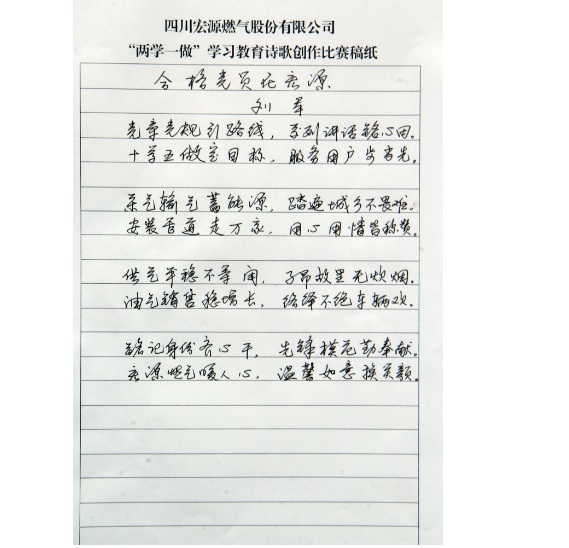 四川宏源燃气股份有限公司
“两学一做”学习教育诗歌创作比赛稿纸
合格党员在宏源
刘军
党章党规引路线，系列讲话铭心田。
十学五做定目标，服务用户步步先。
采气输气蓄能源，踏遍城乡不畏难。
安装管道走万家，用心用情皆称赞。
供气平稳不等闲，子昂故里无炊烟。
油气销售稳增长，络绎不绝车辆欢。
铭记身份齐心干，先锋模范勤奉献。
宏源燃气暖人心，温馨如意换笑颜。